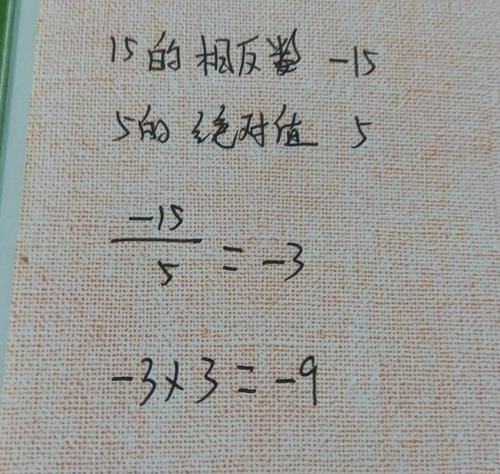 15的相反数 -15
5的绝对值 5
-15/5 = -3
-3×3=-9